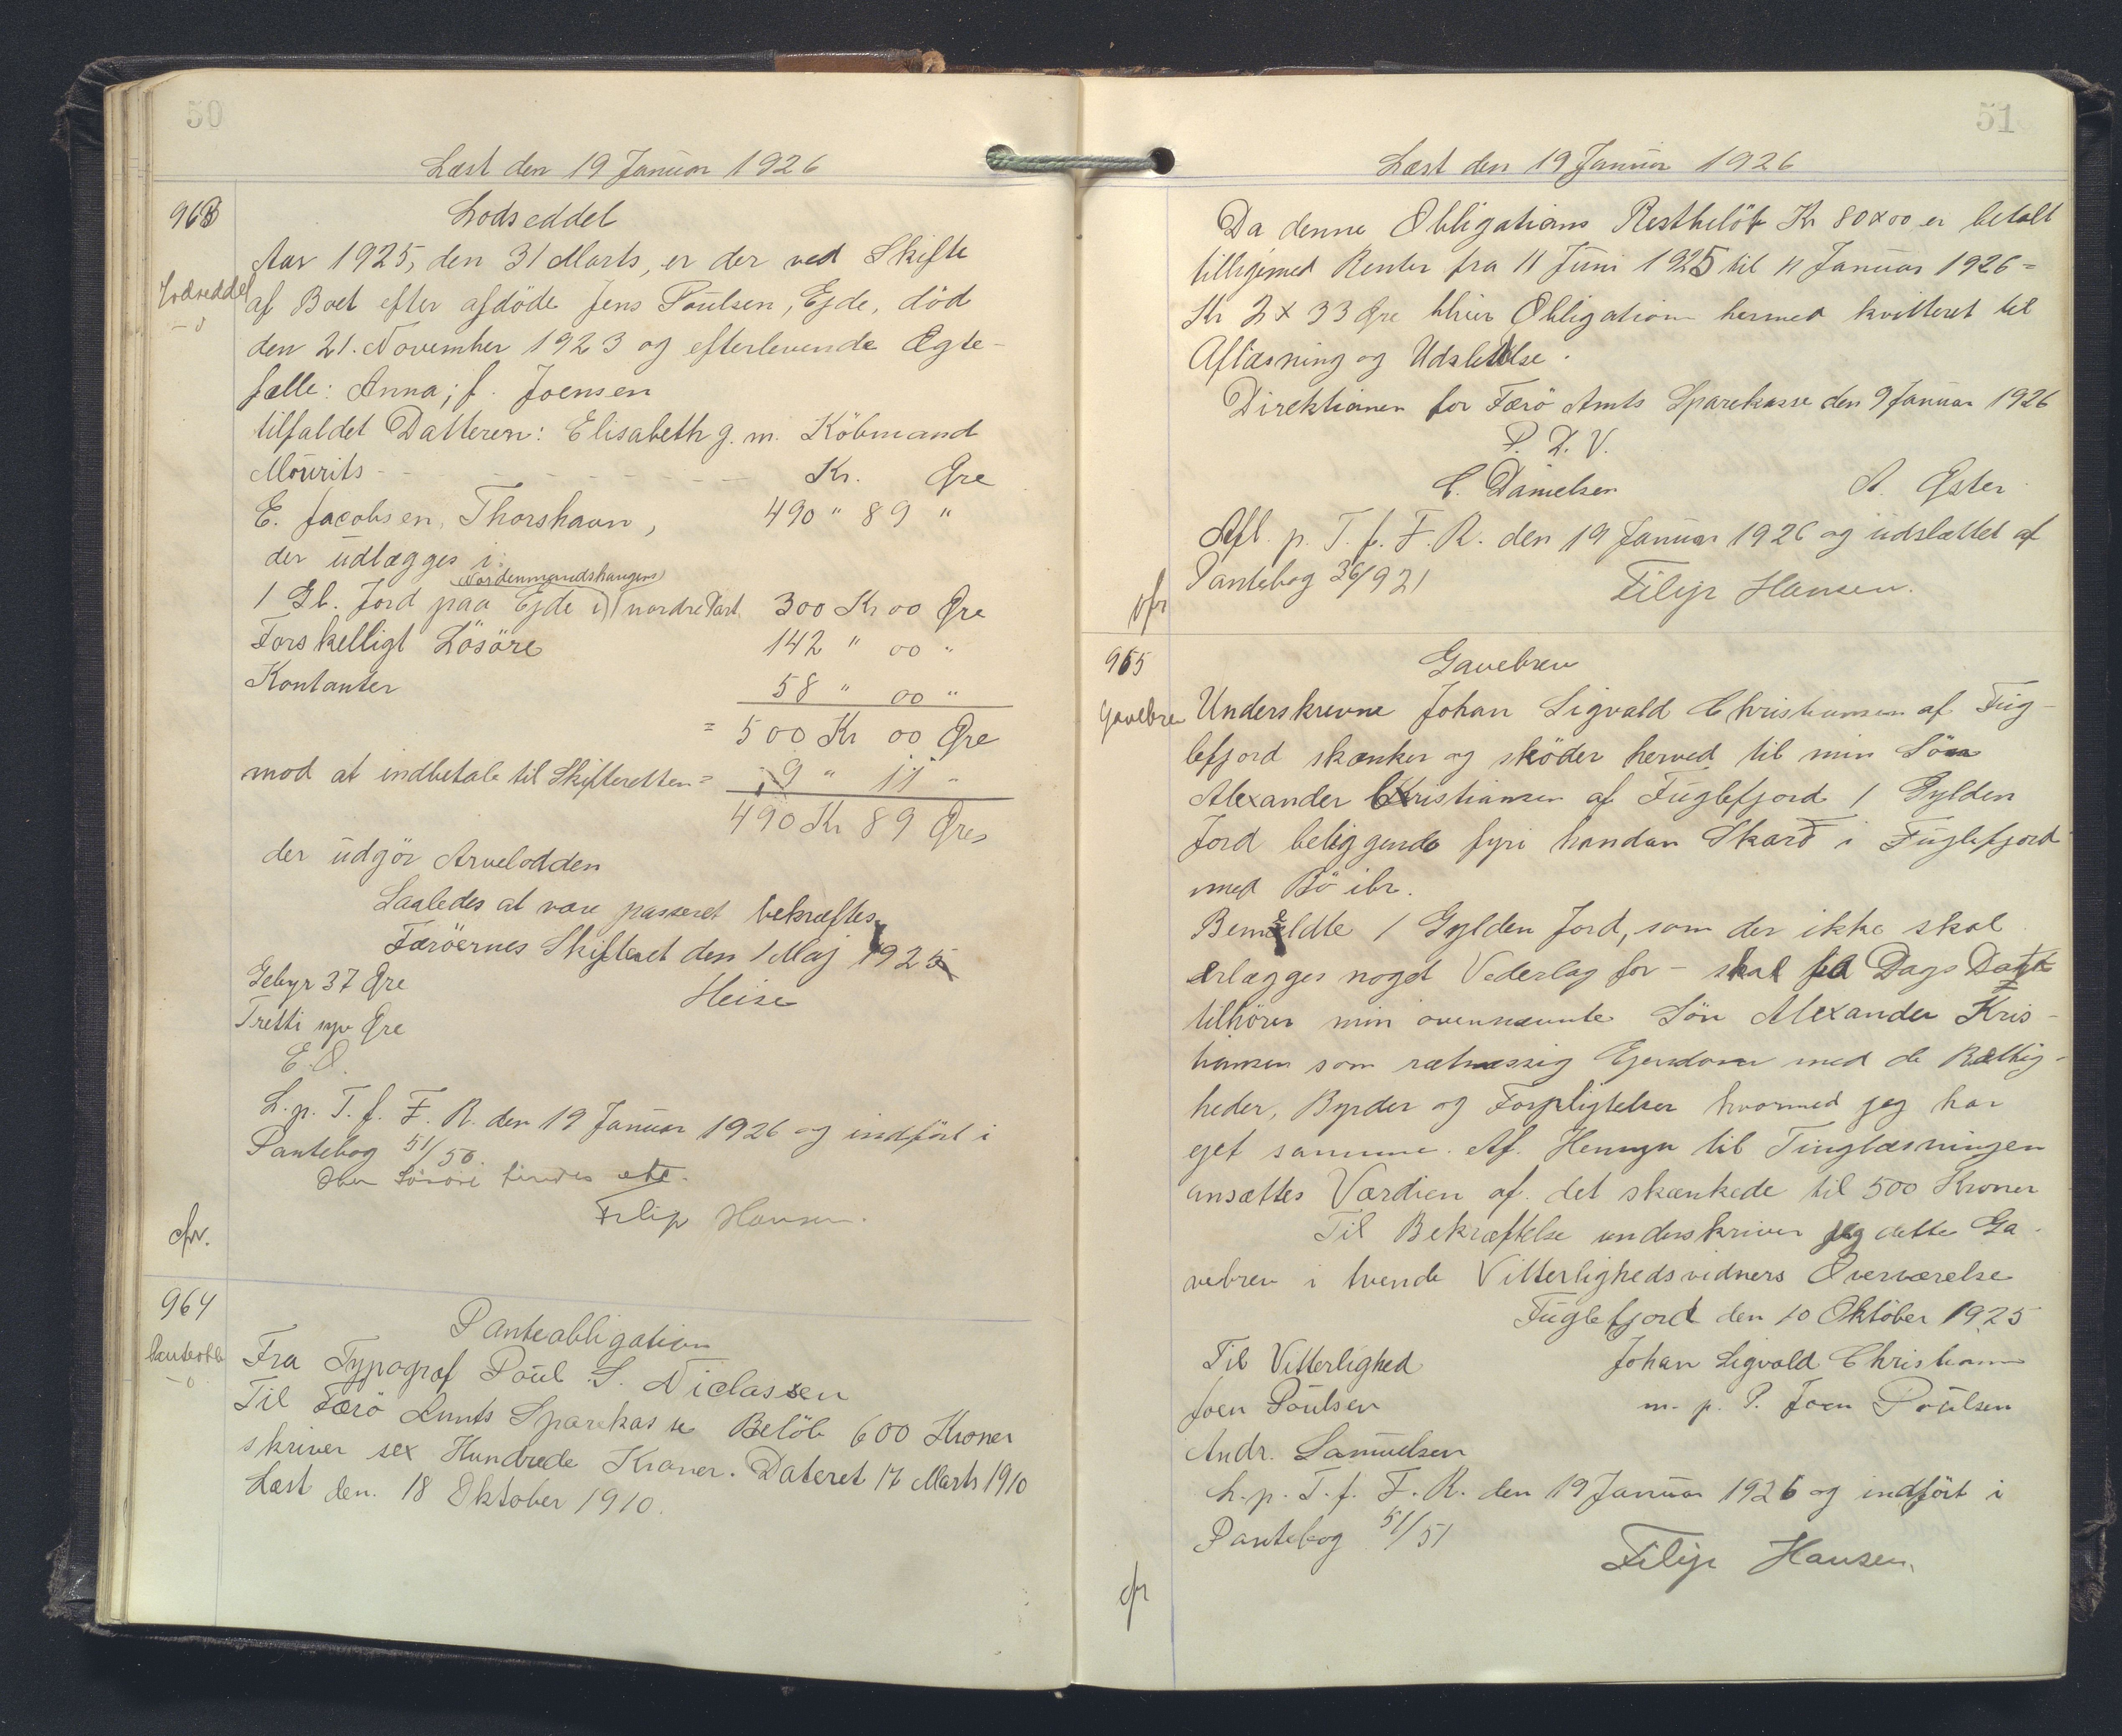 50
Læst den 19 Januar 1926
963
Lodseddel
Lodseddel
Aar 1925, den 31 Marts, er der ved Skifte
af Boet efter afdöde Jens Poulsen, Ejde, död
den 21. November 1923 og efterlevende Ægte-
fælle: Anna; f. Joensen
tilfaldet Datteren: Elisabeth g. m. Köbmand
Mourits - - - - - - - Kr. Øre
E. Jacobsen, Thorshavn, 490 " 89 "
der udlægges i:
Nordenmandshaugens
1 Gl. Jord paa Ejde i nordre Part 300 Kr 00 Øre
Forskelligt Lösöre 142 " 00 "
Kontanter 58 " 00 "
= 500 Kr 00 Øre
mod at indbetale til Skifteretten = 9 " 11 "
490 Kr 89 Øre
der udgör Arvelodden
Saaledes at være passeret bekræftes,
Færöernes Skifteret den 1 Maj 1925
Gebyr 37 Øre Heise
Tretti syv Øre
E.O.
L. p. T. f. F. R. den 19 Januar 1926 og indfört i
Pantebog 51/50.
Lösöre
Filip Hansen.
cfr.
964
Panteobl.
Panteobligation
Fra Typograf Poul S. Niclassen
Til Færö Amts Sparekasse Belöb 600 Kroner
skriver sex Hundrede Kroner. Dateret 17 Marts 1910
Læst den. 18 Oktober 1910.
51
Læst den 19 Januar 1926
Da denne Obligations Restbelöb Kr 80 x 00 er betalt
tilligemed Renter fra 11 Juni 1925 til 11 Januar 1926 =
Kr 2 x 33 Øre bliver Obligation hermed kvitteret til
Aflæsning og Udslettelse.
Direktionen for Færö Amts Sparekasse den 9 Januar 1926
P. D. V.
C. Danielsen A. Øster
Afl. p. T. f. F. R. den 19 Januar 1926 og udslættet af
Pantebog 36/921 Filip Hansen.
cfr
965
Gavebrev
Gavebrev
Underskrevne Johan Sigvald Christiansen af Fug-
lefjord skænker og sköder herved til min Sön
Alexander Kristiansen af Fuglefjord 1 Gylden
Jord beliggende fyri handan Skarð i Fuglefjord
med Bö ibr.
Bemeldte 1 Gylden Jord, som der ikke skal
erlægges noget Vederlag for - skal fra Dags Dato
tilhörer min ovennævnte Sön Alexander Kris-
tiansen som rætmæssig Ejendom med de Rættig-
heder, Byrder og Forpligtelser hvormed jeg har
ejet samme. Af Hensyn til Tinglæsningen
ansættes Værdien af det skænkede til 500 Kroner
Til Bekræftelse underskriver jeg dette Ga-
vebrev i tvende Vitterlighedsvidners Overværelse
Fuglefjord den 10 Oktober 1925
Til Vitterlighed Johan Sigvald Christiansen
Joen Poulsen m. p. P. Joen Poulsen
Andr. Samuelsen
L. p. T. f. F. R. den 19 Januar 1926 og indfört i
Pantebog 51/51
Filip Hansen.
cfr